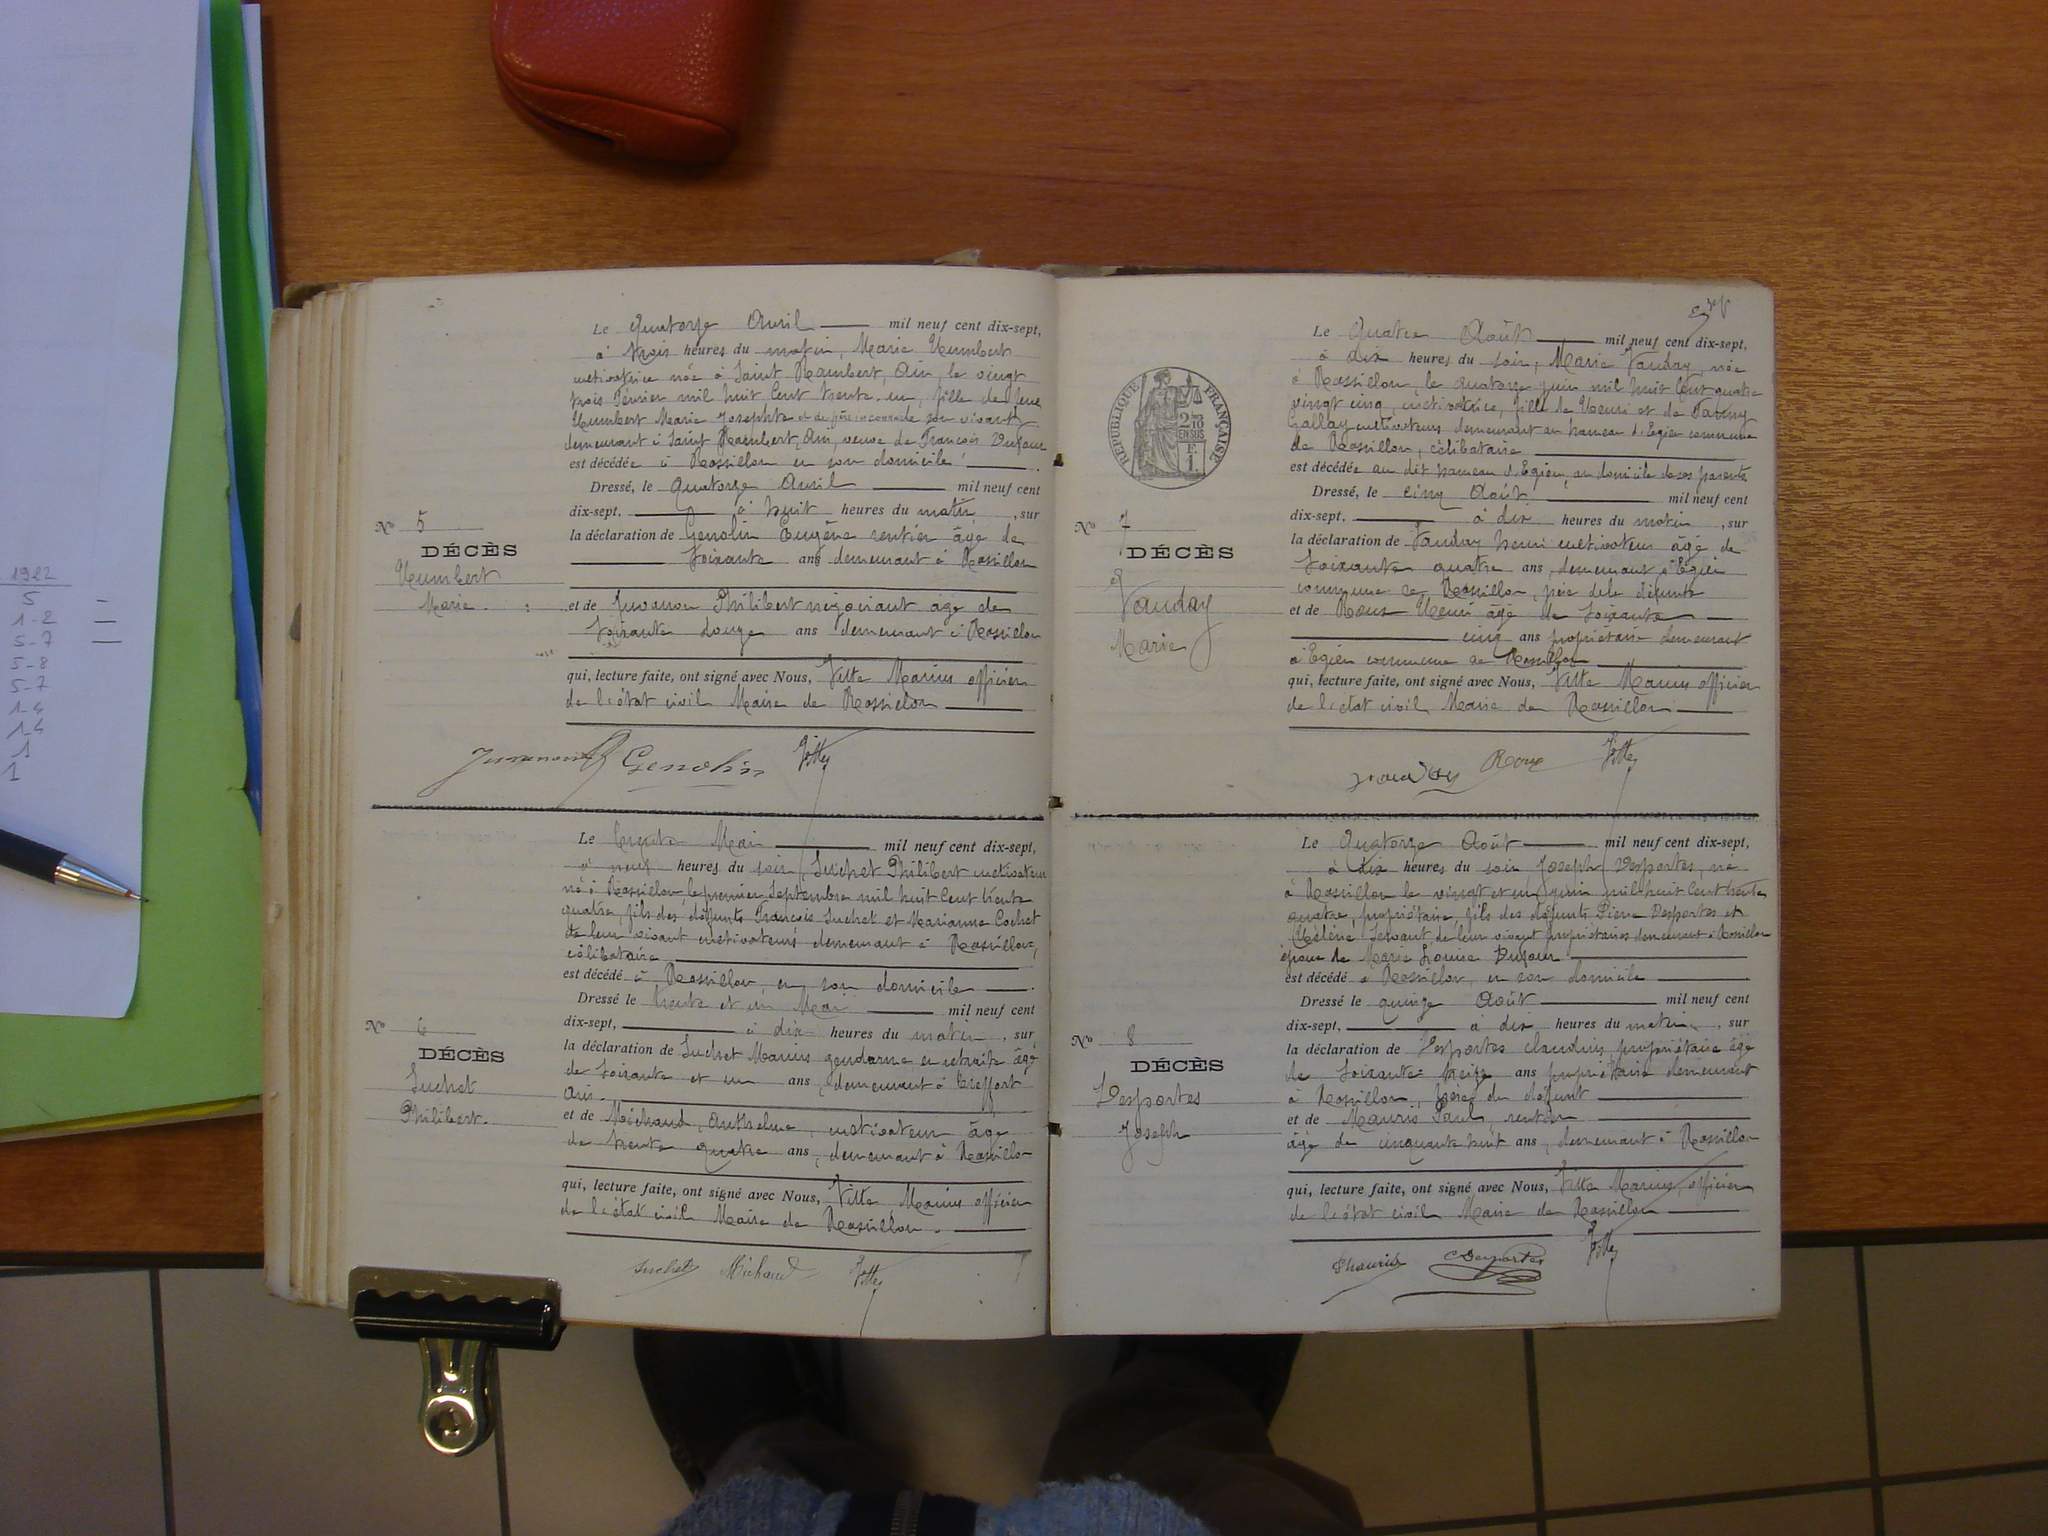 1922
5
1-2
5-7
5-8
5-7
1-4
1-4
1
1
Le Quatorze Avril mil neuf cent dix-sept,
à trois heures du matin, Marie Humbert
cultivatrice née à Saint Rambert, Ain, le vingt
trois Février mil huit Cent trente-un, fille de feue
Humbert Marie Josephte et de père inconnu de son vivant
demeurant à Saint Rambert, Ain, veuve de François Dufour
est décédée à Rossillon en son domicile.
Dressé, le Quatorze Avril mil neuf cent
dix-sept, à huit heures du matin, sur
la déclaration de Genolin Eugène rentier âgé de
soixante ans demeurant à Rossillon
et de Juvanon Philibert négociant âgé de
soixante douze ans demeurant à Rossillon
qui, lecture faite, ont signé avec Nous, Vitte Marius officier
de l'état civil Maire de Rossillon
Juvanon Genolin Vitte
No 5
DÉCÈS
Humbert
Marie.
Le trente Mai mil neuf cent dix-sept,
à neuf heures du soir, Suchet Philibert cultivateur
né à Rossillon, le premier Septembre mil huit Cent trente
quatre, fils des défunts François Suchet et Marianne Cochet
de leur vivant cultivateurs demeurant à Rossillon,
célibataire
est décédé à Rossillon, en son domicile.
Dressé le trente et un Mai mil neuf cent
dix-sept, à dix heures du matin, sur
la déclaration de Suchet Marius gendarme en retraite âgé
de soixante et un ans, demeurant à Treffort
Ain.
et de Michaud, Anthelme, cultivateur âgé
de trente quatre ans, demeurant à Rossillon
qui, lecture faite, ont signé avec Nous, Vitte Marius officier
de l'état civil Maire de Rossillon.
Suchet Michaud Vitte
No 6
DÉCÈS
Suchet
Philibert.
RÉPUBLIQUE FRANÇAISE
2/10 EN SUS
F. 1.
Le Quatre Août mil neuf cent dix-sept,
à dix heures du soir, Marie Vauday, née
à Rossillon, le quatorze juin mil huit Cent quatre
vingt cinq, cultivatrice, fille de Henri et de
Gallay cultivateurs demeurant au hameau d'Egieu commune
de Rossillon, célibataire
est décédée au dit hameau d'Egieu, au domicile de ses parents
Dressé, le cinq Août mil neuf cent
dix-sept, à dix heures du matin, sur
la déclaration de Vauday henri cultivateur âgé de
soixante quatre ans, demeurant à Egieu
commune de Rossillon, père de la défunte
et de Roux Henri âgé de soixante
cinq ans propriétaire demeurant
à Egieu commune de Rossillon
qui, lecture faite, ont signé avec Nous, Vitte Marius officier
de l'état civil Maire de Rossillon
Vauday Roux Vitte
No 7
DÉCÈS
Vauday
Marie
Le Quatorze Août mil neuf cent dix-sept,
à dix heures du soir Joseph Desportes, né
à Rossillon le vingt et un juin mil huit Cent trente
quatre, propriétaire, fils des défunts Pierre Desportes et
Hélène Servant, de leur vivant propriétaires demeurant à Rossillon
époux de Marie Louise Dufour
est décédé à Rossillon, en son domicile
Dressé le quinze Août mil neuf cent
dix-sept, à dix heures du matin, sur
la déclaration de Desportes claudius, propriétaire âgé
de soixante-treize ans propriétaire demeurant
à Rossillon, frère du défunt
et de Mauris Paul, rentier
âgé de cinquante huit ans, demeurant à Rossillon
qui, lecture faite, ont signé avec Nous, Vitte Marius, officier
de l'état civil Maire de Rossillon
Mauris CDesportes Vitte
No 8
DÉCÈS
Desportes
Joseph